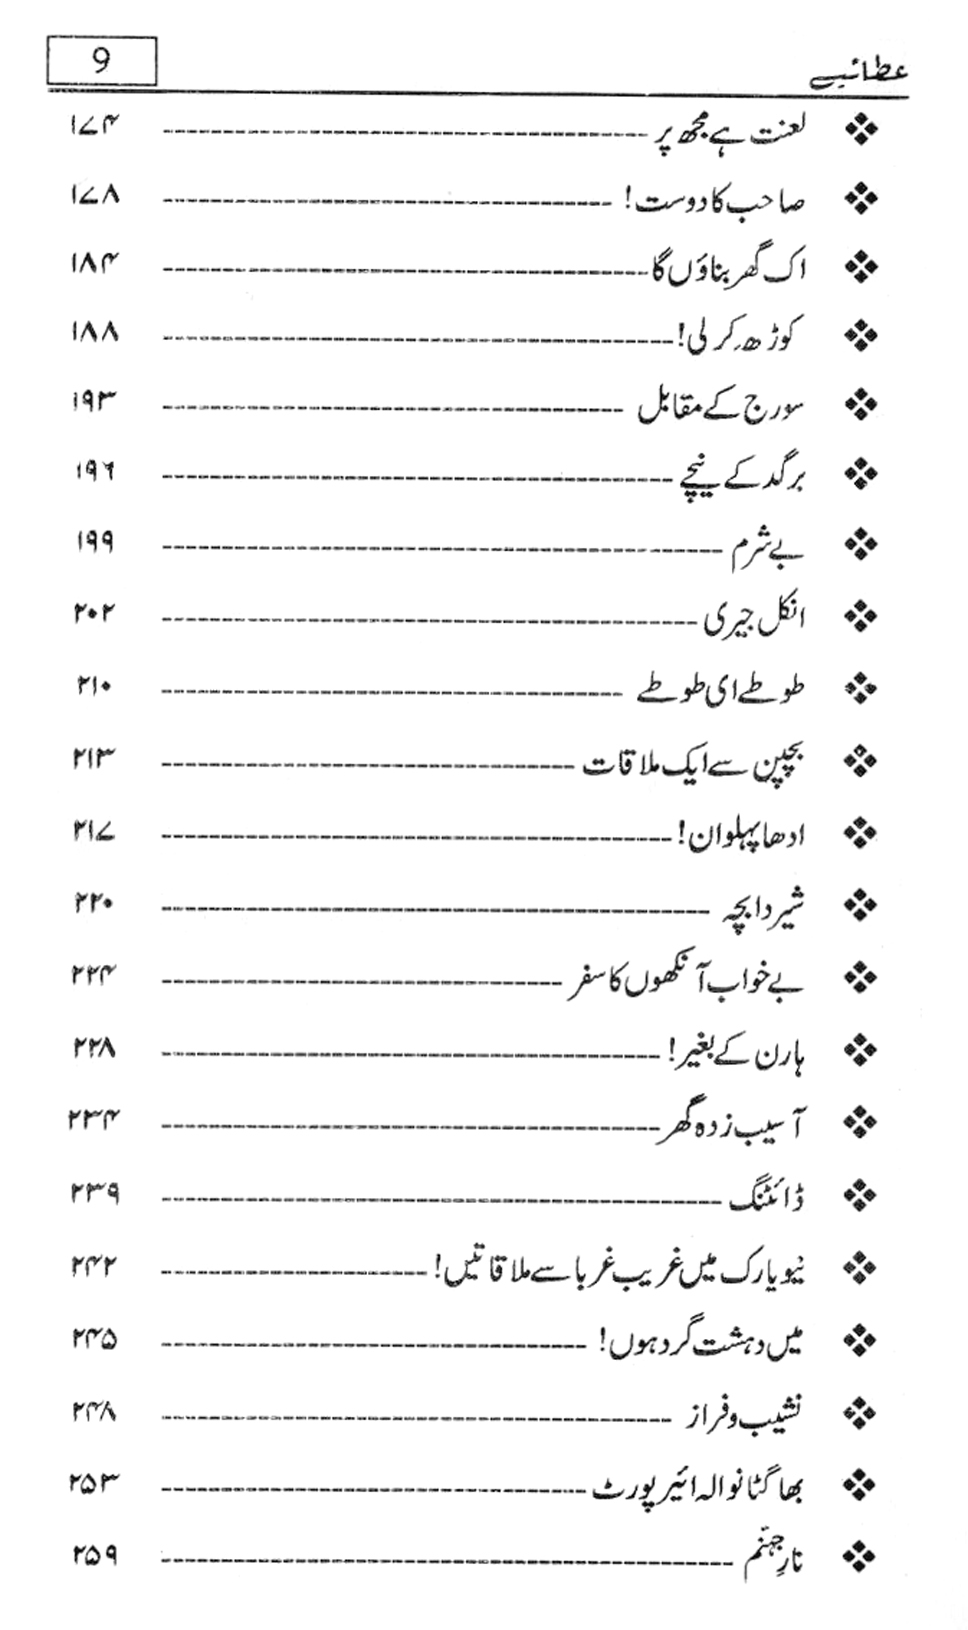 عطائیے 9
❖ لعنت ہے مجھ پر ---------- ۱۷۴
❖ صاحب کا دوست! ---------- ۱۷۸
❖ اک گھر بناؤں گا ---------- ۱۸۴
❖ کوڑھ کرلی! ---------- ۱۸۸
❖ سورج کے مقابل ---------- ۱۹۳
❖ برگد کے نیچے ---------- ۱۹۶
❖ بے شرم ---------- ۱۹۹
❖ انکل جیری ---------- ۲۰۲
❖ طوطے ای طوطے ---------- ۲۱۰
❖ بچپن سے ایک ملاقات ---------- ۲۱۳
❖ ادھا پہلوان! ---------- ۲۱۷
❖ شیر دا بچہ ---------- ۲۲۰
❖ بے خواب آنکھوں کا سفر ---------- ۲۲۴
❖ ہارن کے بغیر! ---------- ۲۲۸
❖ آسیب زدہ گھر ---------- ۲۳۴
❖ ڈائٹنگ ---------- ۲۳۹
❖ نیویارک میں غریب غربا سے ملاقاتیں! ---------- ۲۴۲
❖ میں دہشت گرد ہوں! ---------- ۲۴۵
❖ نشیب و فراز ---------- ۲۴۸
❖ بھاگٹانوالہ ائیرپورٹ ---------- ۲۵۳
❖ نارِ جہنّم ---------- ۲۵۹